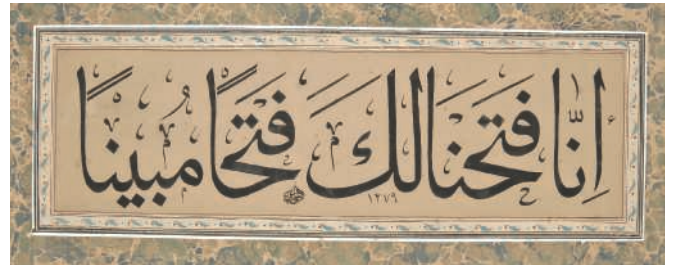 إِنَّا فَتَحْنَا لَكَ فَتْحًا مُبِينًا
١٢٧٩